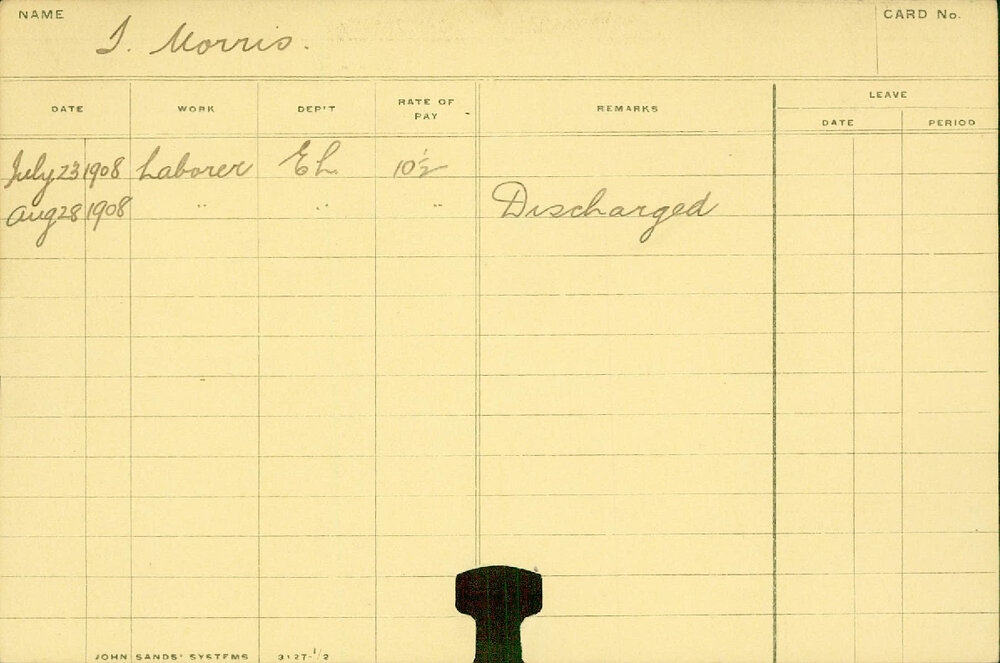 NAME
CARD No.
J. Morris.
DATE WORK DEP'T RATE OF PAY REMARKS LEAVE
DATE PERIOD
July 23 1908 Laborer EL. 10½
Aug 28 1908 " " " Discharged
JOHN SANDS' SYSTEMS 3127-1/2